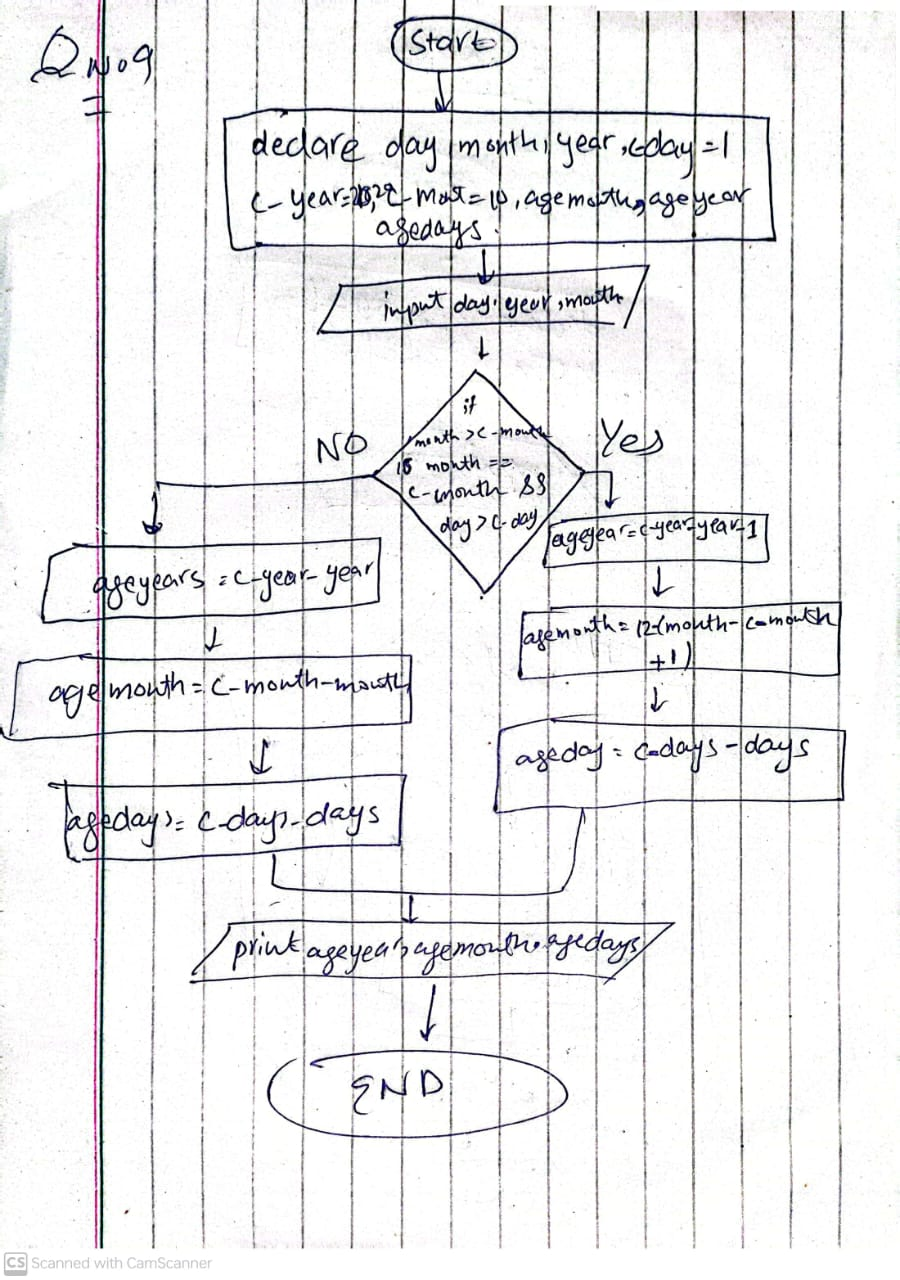 Q No 9
Start
declare day, month, year, c-day=1
c-year= c-mont=10, agemonth, ageyear
agedays.
input day, year, month
if
month > c-month
month ==
c-month &&
day > c-day
NO
Yes
ageyears = c-year- year
agemonth = c-month-month
agedays = c-days-days
ageyear=c-year-year-1
agemonth = 12-(month- c-month
+1)
ageday = c-days - days
print ageyear, agemonth, agedays
END
CS Scanned with CamScanner